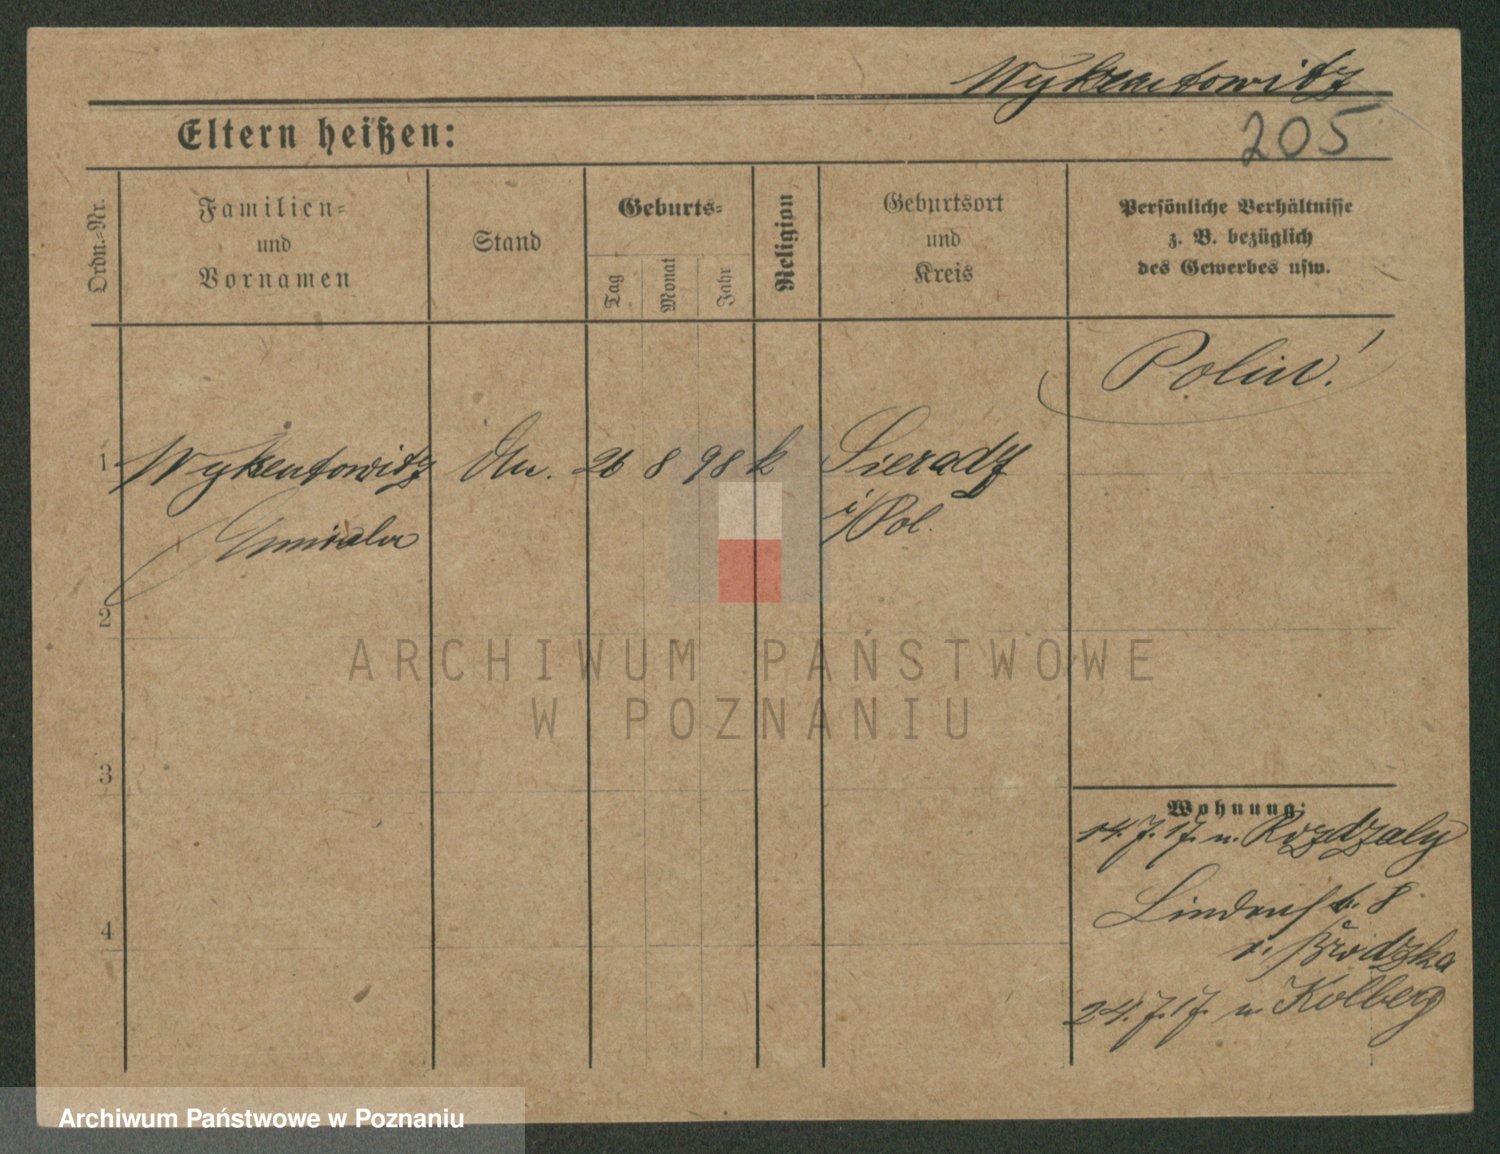 Wykrentowitz
205
Eltern heißen:
Ordn.-Nr.
Familien-
und
Vornamen
Stand
Geburts-
Tag
Monat
Jahr
Religion
Geburtsort
und
Kreis
Persönliche Verhältnisse
z. B. bezüglich
des Gewerbes usw.
Polin!
1 Wykrentowitz 26 8 98 k Sieradz
i/Pol.
2
3
4
Wohnung:
14.7.17. n. Rozdzaly
Lindenstr. 8
v. Brodzka
24.7.17. n. Kolberg
ARCHIWUM PAŃSTWOWE
W POZNANIU
Archiwum Państwowe w Poznaniu